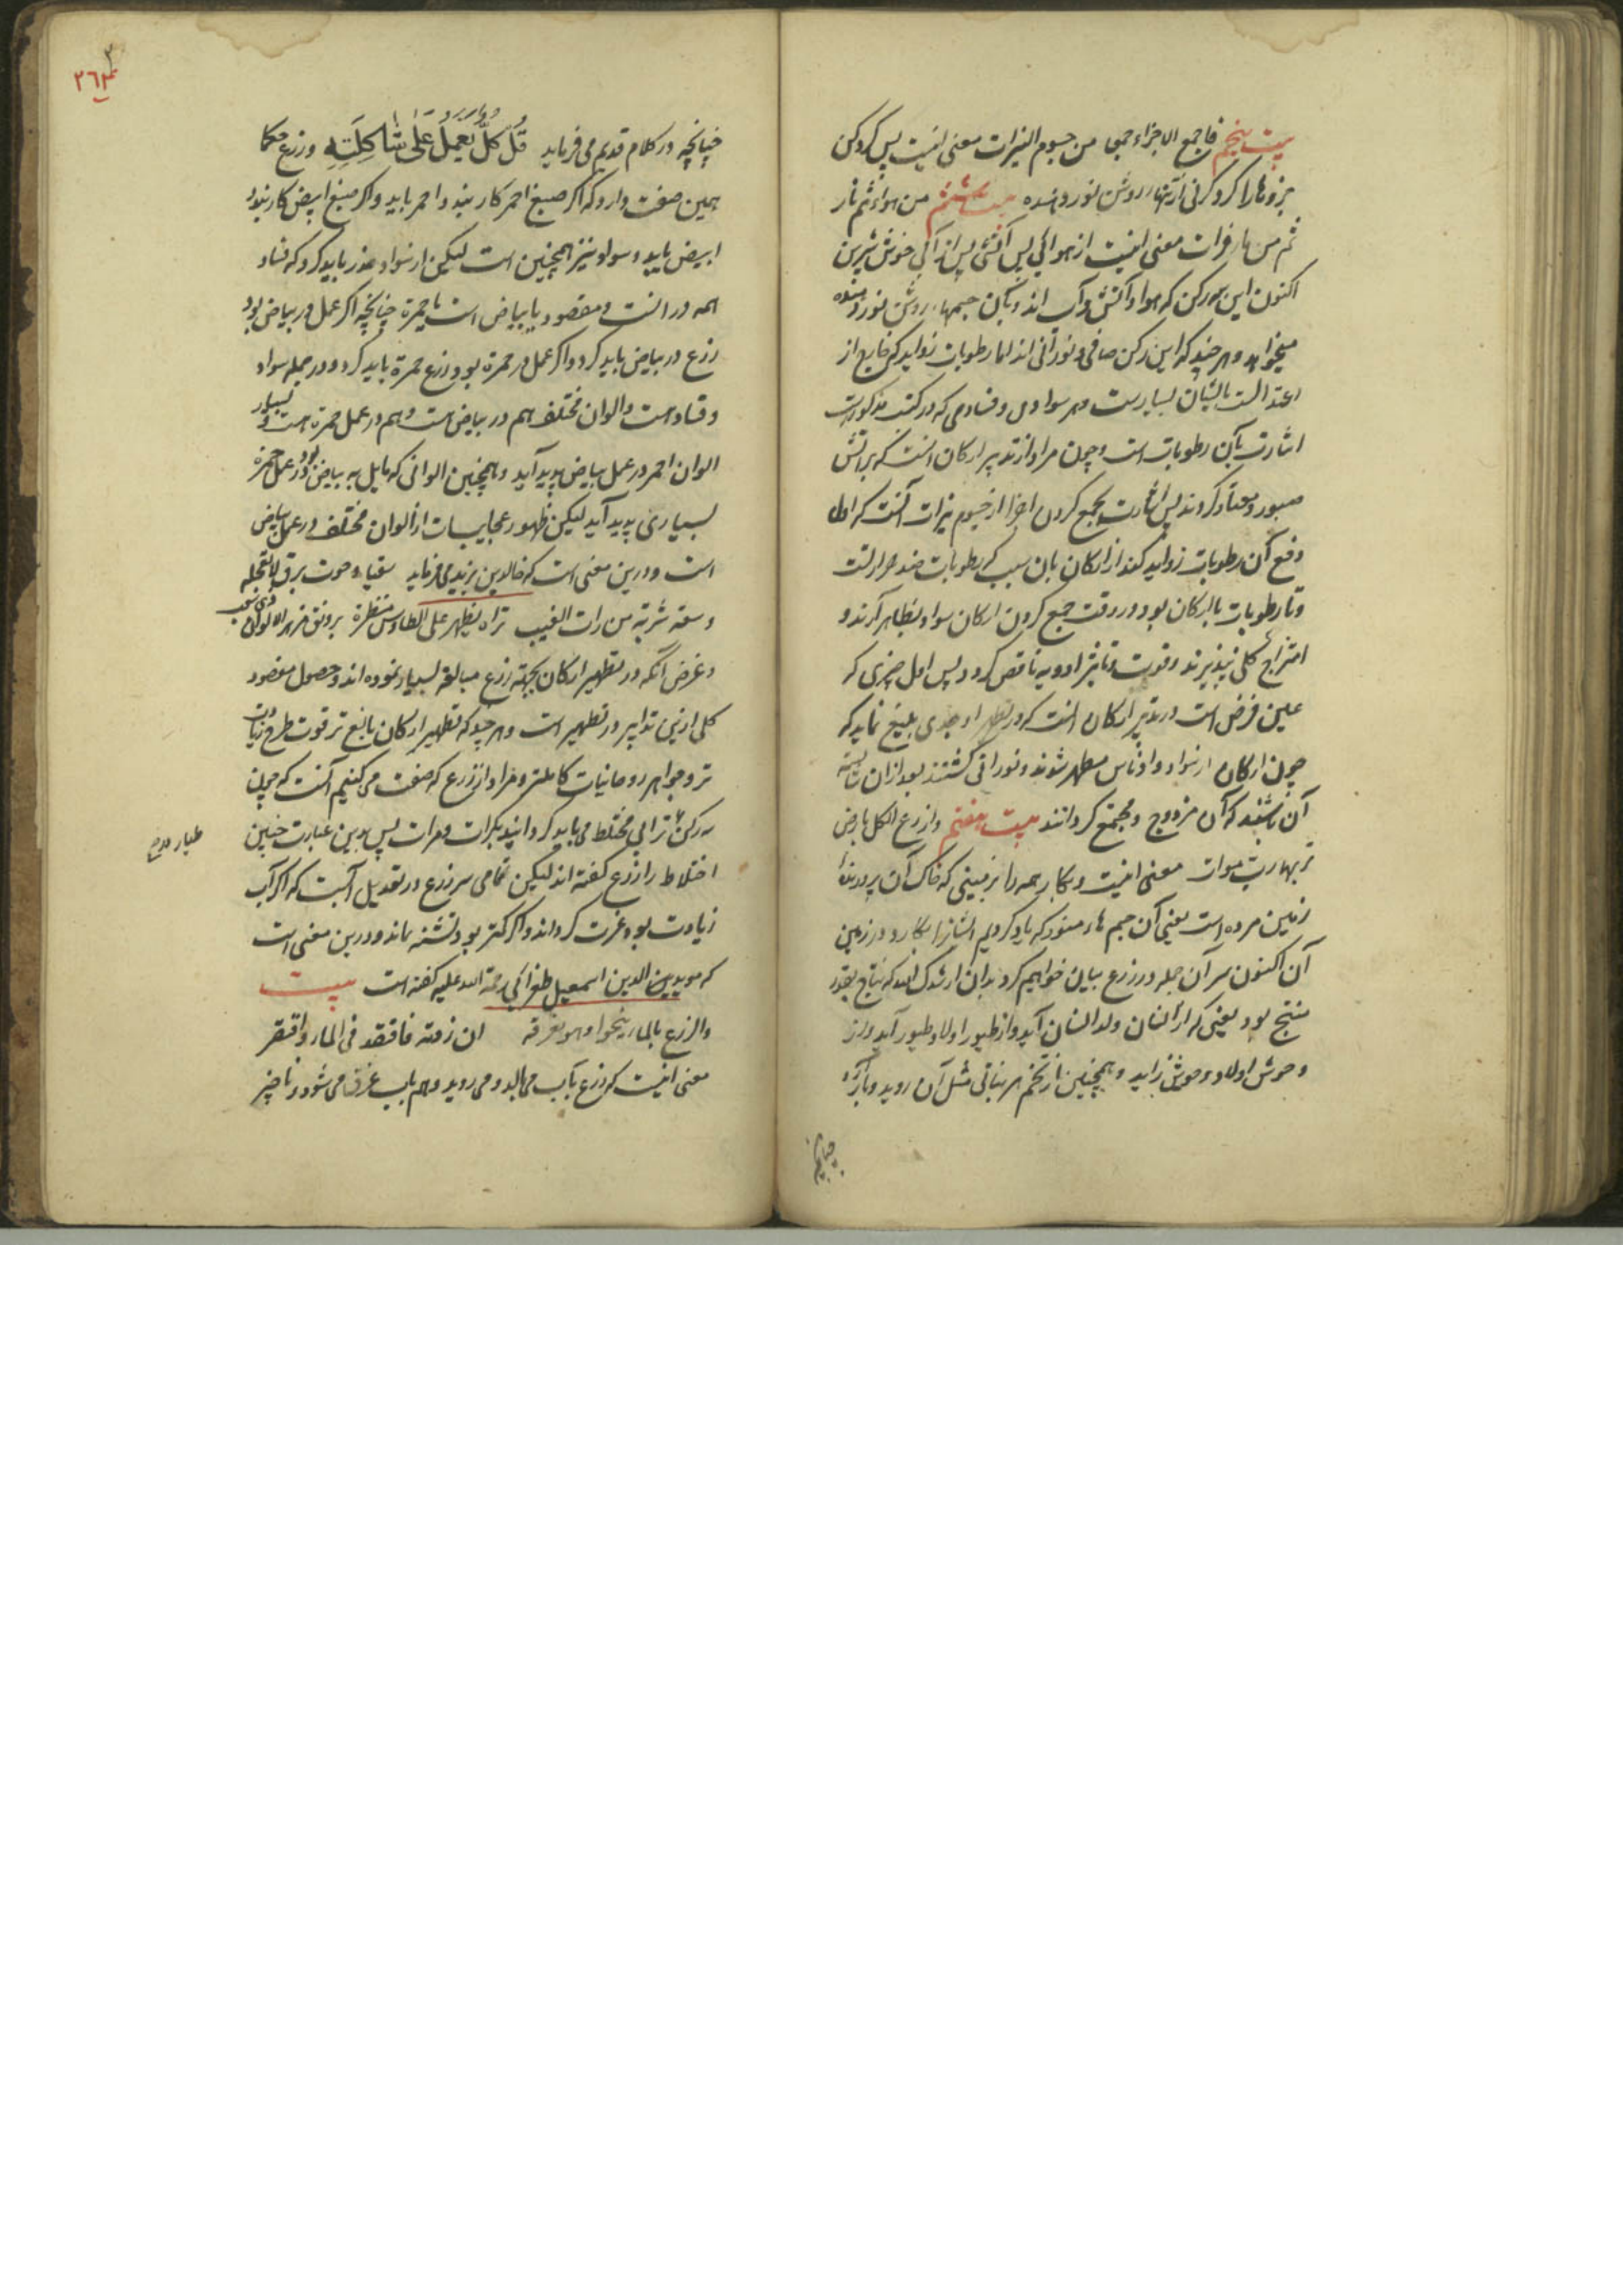 بیت پنجم فاجمع الاجزاء جمعا من جسوم النیرات معنی اینست پس کرد کن
جزوها را کرد کرنی از تنهاء روشن نور دهنده بیت ششم من هواء ثم نار
ثم من ماء فرات معنی اینست از هوایی پس آتشی پس از آبی خوش شیرین
اکنون این سه رکن که هوا و آتش و آب اند و بآن جسمهاء روشن نور دهنده
میخواهد و هر چند که این رکن صافی و نورانی اند اما رطوبات زواید که خارج از
اعتدالست با ایشان بسیارست و هر سوادی و فسادی که در کتب مذکورست
اشارت بآن رطوبات است و چون مراد از تدبیر ارکان آنست که بر آتش
صبور و معتاد کردند پس اشارت بجمع کردن اجزا از جسوم نیرات آنست که اول
دفع آن رطوبات زواید کند از ارکان بان سبب که رطوبات ضد حرارتست
و تا رطوبات با ارکان بود در وقت جمع کردن ارکان سواد بظاهر آرند و
امتزاج کلی نپذیرند و قوت و تاثیر ادویه ناقص کردد پس اول چیزی که
عین فرض است در تدبیر ارکان آنست که در تطهیر او جدی بلیغ نماید که
چون ارکان از سواد و ادناس مطهر شوند و نورانی کشتند بعد از ان شایسته
آن باشند که آن مزدوج و مجتمع کردانند بیت هفتم وازرع الکل بارض
تربها رب موات معنی اینست و بکار همه را بزمینی که خاک آن پرورنده
زمین مرده است یعنی آن جسم هاء منور که یاد کردیم ایشانرا بکارد در زمین
آن اکنون سر آن جمله در زرع بیان خواهیم کرد بدان ارشدک الله که نتاج بقدر
منتج بود یعنی که از انسان ولد انسان آید و از طیور اولاد طیور آید و از
وحوش اولاد وحوش زاید و همچنین از تخم هر نباتی مثل آن روید و بار آرد
چنانچه
۲۶۳
چنانچه در کلام قدیم می فرماید قُل کُلٌّ یَعمَلُ عَلی شاکِلَتِه و زرع حکما
همین صفت دارد که اگر صبغ احمر کار بندد احمر یابد و اگر صبغ ابیض کار بندد
ابیض یابد و سواد نیز همچنین است لیکن از سواد حذر باید کرد که فساد
همه در آنست و مقصود یا بیاض است یا حمرة چنانچه اکر عمل در بیاض بود
زرع در بیاض باید کرد و اکر عمل در حمرة بود زرع حمرة باید کرد و در جمله سواد
و فساد است و الوان مختلف هم در بیاض است و هم در عمل حمرة است و بسیار
الوان احمر در عمل بیاض پدید آید و همچنین الوانی که مایل به بیاض بود در عمل حمرة
بسیاری پدید آید لیکن ظهور عجایبات از الوان مختلف در عمل بیاض
است و درین معنی است که خالد بن یزید می فرماید
تراه یظهر علی الطاوس منظرة
و غرض آنکه در تطهیر ارکان بجهته زرع مبالغه بسیار نموده اند و حصول مقصود
کلی ازین تدابیر در تطهیر است و هر چند که تطهیر ارکان بالغ تر قوت طرح زیادت
تر و جواهر روحانیات کاملتر و مراد از زرع که صفت می کنیم آنست که چون
سه رکن با ترابی مختلط می باید کردانید بکرات و مرات پس بدین عبارت چنین
اختلاط را زرع کفته اند لیکن تمامی سر زرع در تعدیل آبست که اکر آب
زیادت بود غرق کرداند و اکر کمتر بود تشنه ماند و درین معنی است
که موید الدین اسمعیل طغرایی رحمة الله علیه کفته است بیت
والزرع بالماء ینمو وهو یغرقه ان زدته فاقتصد فی الماء واقتصر
معنی اینست که زرع بآب می بالد و می روید و هم بآب غرق می شود و ناچیز